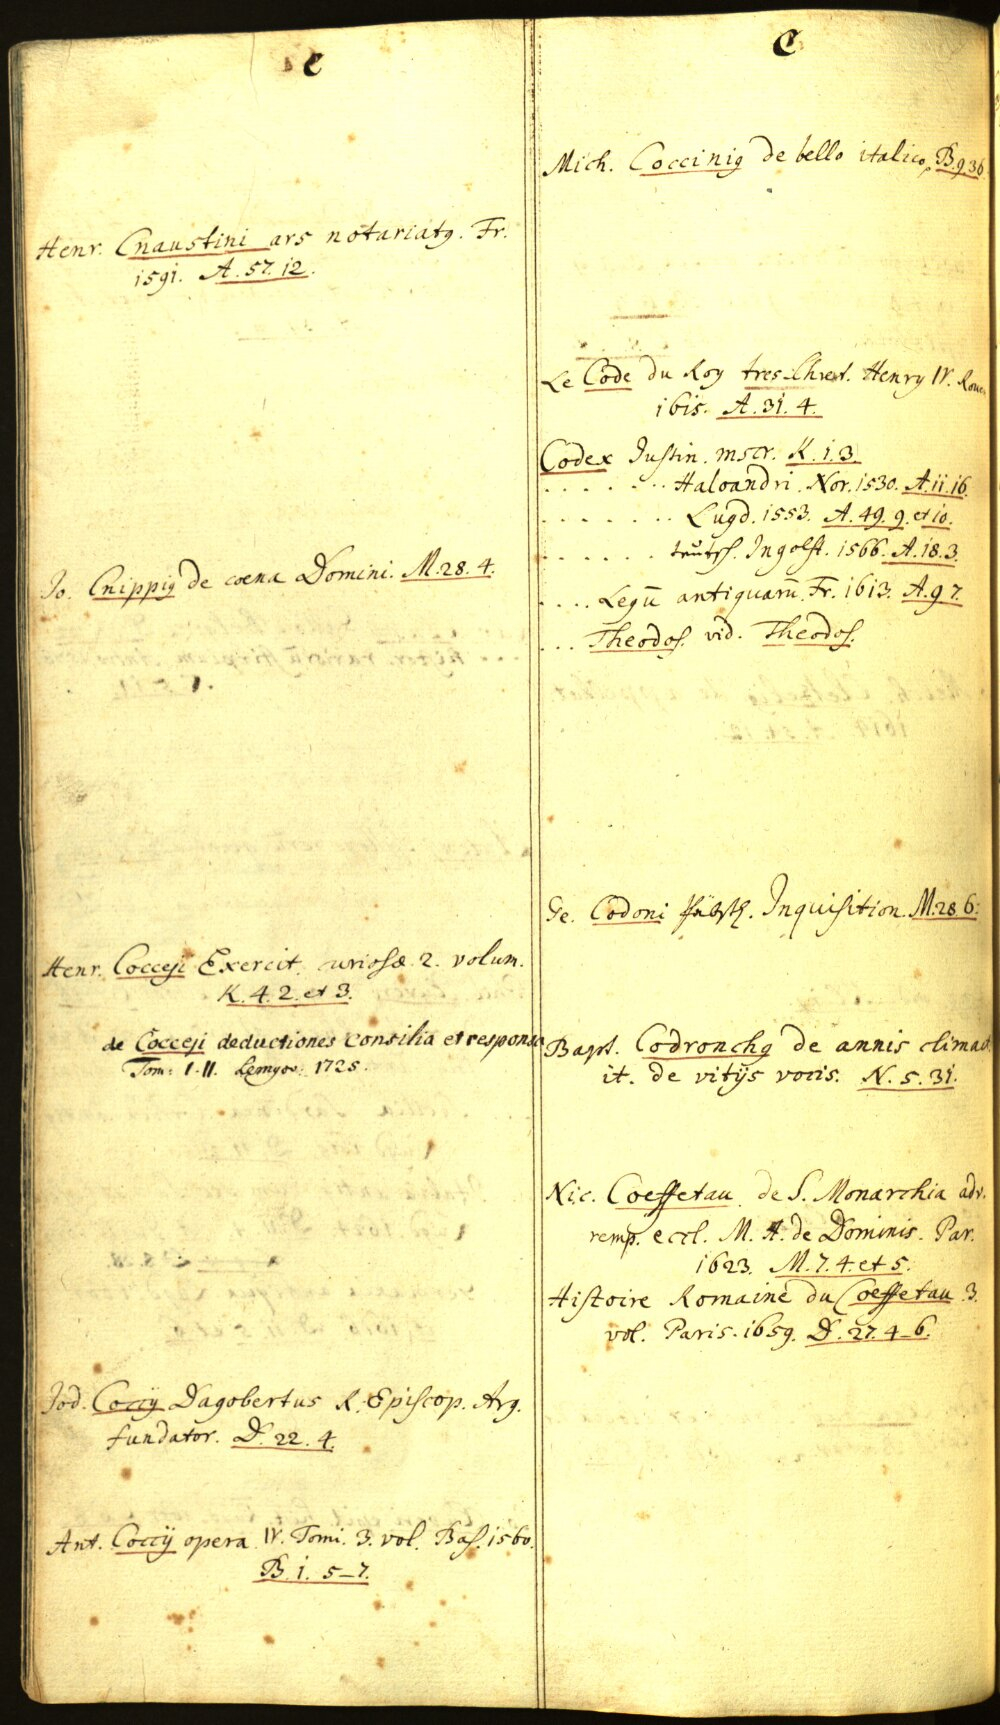 C
Henr. Cnaustini ars notariatg. Fr.
1591. A. 57. 12.
Jo. Cnippig de coena Domini. M. 28. 4.
Henr. Cocceji Exercit. curiosæ 2. volum.
K. 4. 2. et 3.
de Cocceji deductiones consilia et responsa
Tom: I. II. Lemgov. 1725.
Jod. Coccij Dagobertus R. Episcop. Arg.
fundator. D. 22. 4.
Ant. Coccij opera IV. Tomi. 3. vol. Bas. 1560.
B. 1. 5-7.
C
Mich. Coccinig de bello italico. B. 9. 36.
Le Code du Roy tres-Chrest. Henry IV. Rouen
1615. A. 31. 4.
Codex Justin. mscr. K. 1. 3.
. . . . . . . Haloandri. Nor. 1530. A. 11. 16.
. . . . . . . . Lugd. 1553. A. 49. 9. et 10.
. . . . . . teutsch. Ingolst. 1566. A. 18. 3.
. . . . Legū antiquarū. Fr. 1613. A. 9. 7.
. . . Theodos. vid. Theodos.
Ge. Codoni Inquisition. M. 28. 6.
Bapt. Codronchg de annis climact.
it. de vitijs vocis. N. 5. 31.
Nic. Coeffetau de S. Monarchia adv.
remp. eccl. M. A. de Dominis. Par.
1623. M. 7. 4. et 5.
Histoire Romaine du Coeffetau 3.
vol. Paris. 1659. D. 27. 4-6.